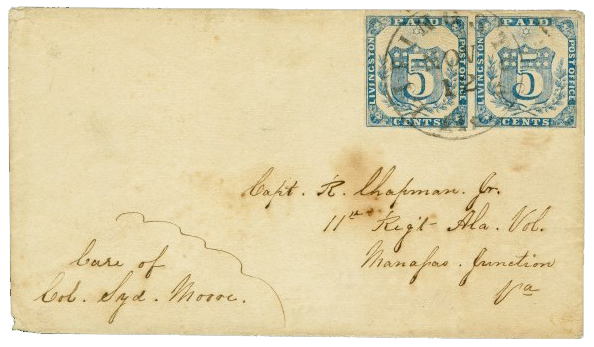 PAID
LIVINGSTON
5
POST OFFICE
CENTS
PAID
LIVINGSTON
5
POST OFFICE
CENTS
NOV
12
Capt. R. Chapman. Jr.
11th Reg't Ala. Vol.
Manapas. Junction
Va
Care of
Col. Syd. Moore.